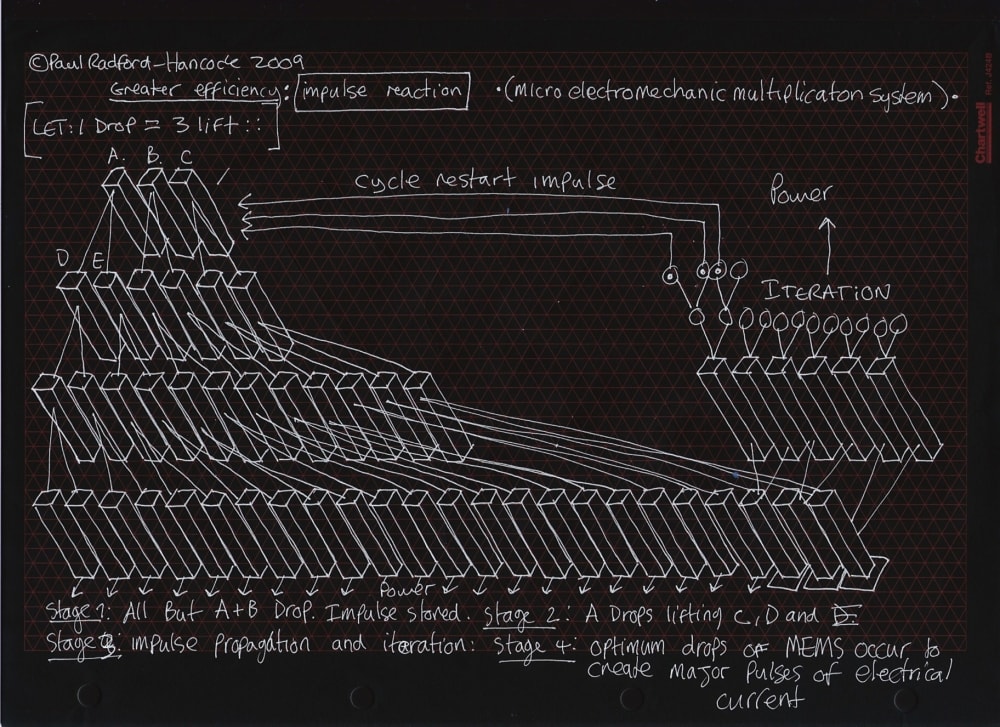 ©Paul Radford-Hancock 2009
Greater efficiency: impulse reaction •(micro electromechanic multiplicaton system)•
LET: 1 Drop = 3 lift ::
A. B. C
cycle restart impulse
Power
D E
ITERATION
Power
Stage 1: All But A+B Drop. Impulse stored. Stage 2: A Drops lifting C, D and E.
Stage 3: impulse propagation and iteration: Stage 4: optimum drops of MEMS occur to
create major pulses of electrical
current
Chartwell
Ref. J4249